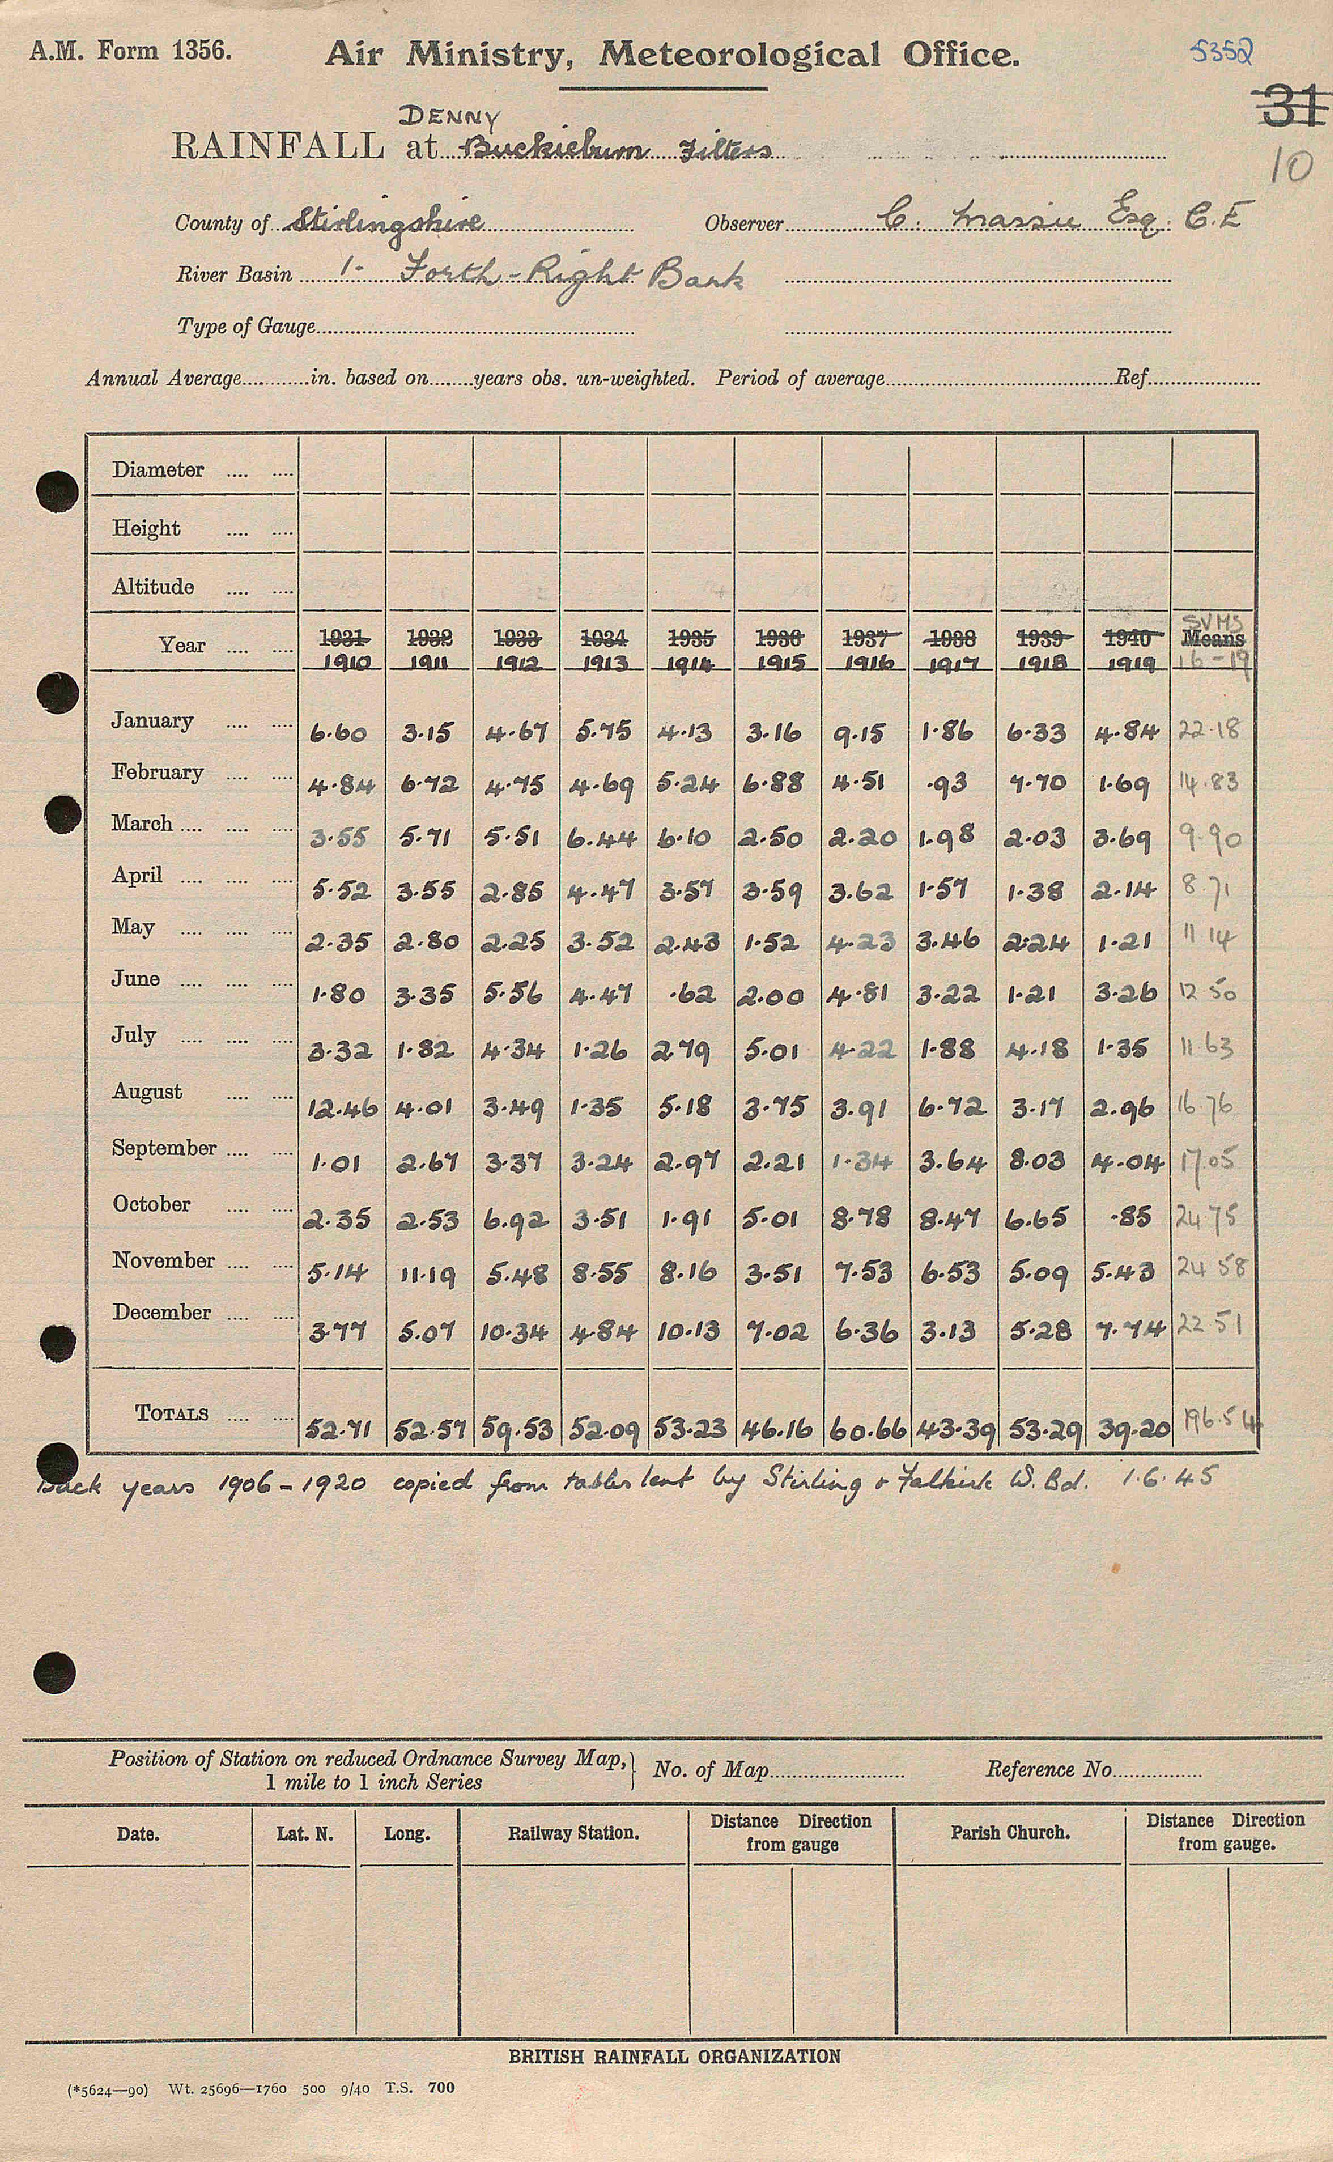 A.M. Form 1356.
Air Ministry, Meteorological Office.
5352
31
10
DENNY
RAINFALL at Buckieburn Filters
County of Stirlingshire Observer C. Massie Esq. C.E
River Basin 1- Forth - Right Bank
Type of Gauge
Annual Average in. based on years obs. un-weighted. Period of average Ref.
Diameter
Height
Altitude
SUMS
Year 1931 1932 1933 1934 1935 1936 1937 1938 1939 1940 Means
1910 1911 1912 1913 1914 1915 1916 1917 1918 1919 16-19
January 6.60 3.15 4.67 5.75 4.13 3.16 9.15 1.86 6.33 4.84 22.18
February 4.84 6.72 4.75 4.69 5.24 6.88 4.51 .93 7.70 1.69 14.83
March 3.55 5.71 5.51 6.44 6.10 2.50 2.20 1.98 2.03 3.69 9.90
April 5.52 3.55 2.85 4.47 3.57 3.59 3.62 1.57 1.38 2.14 8.71
May 2.35 2.80 2.25 3.52 2.43 1.52 4.23 3.46 2.24 1.21 11 14
June 1.80 3.35 5.56 4.47 .62 2.00 4.81 3.22 1.21 3.26 12 50
July 3.32 1.82 4.34 1.26 2.79 5.01 4.22 1.88 4.18 1.35 11.63
August 12.46 4.01 3.49 1.35 5.18 3.75 3.91 6.72 3.17 2.96 16.76
September 1.01 2.67 3.37 3.24 2.97 2.21 1.34 3.64 8.03 4.04 17.05
October 2.35 2.53 6.92 3.51 1.91 5.01 8.78 8.47 6.65 .85 24 75
November 5.14 11.19 5.48 8.55 8.16 3.51 7.53 6.53 5.09 5.43 24 58
December 3.77 5.07 10.34 4.84 10.13 7.02 6.36 3.13 5.28 7.74 22.51
TOTALS 52.71 52.57 59.53 52.09 53.23 46.16 60.66 43.39 53.29 39.20 196.54
Back years 1906 - 1920 copied from tables lent by Stirling & Falkirk W. Bd. 1.6.45
Position of Station on reduced Ordnance Survey Map, 1 mile to 1 inch Series } No. of Map Reference No.
Date. Lat. N. Long. Railway Station. Distance Direction from gauge Parish Church. Distance Direction from gauge.
BRITISH RAINFALL ORGANIZATION
(*5624—90) Wt. 25696—1760 500 9/40 T.S. 700